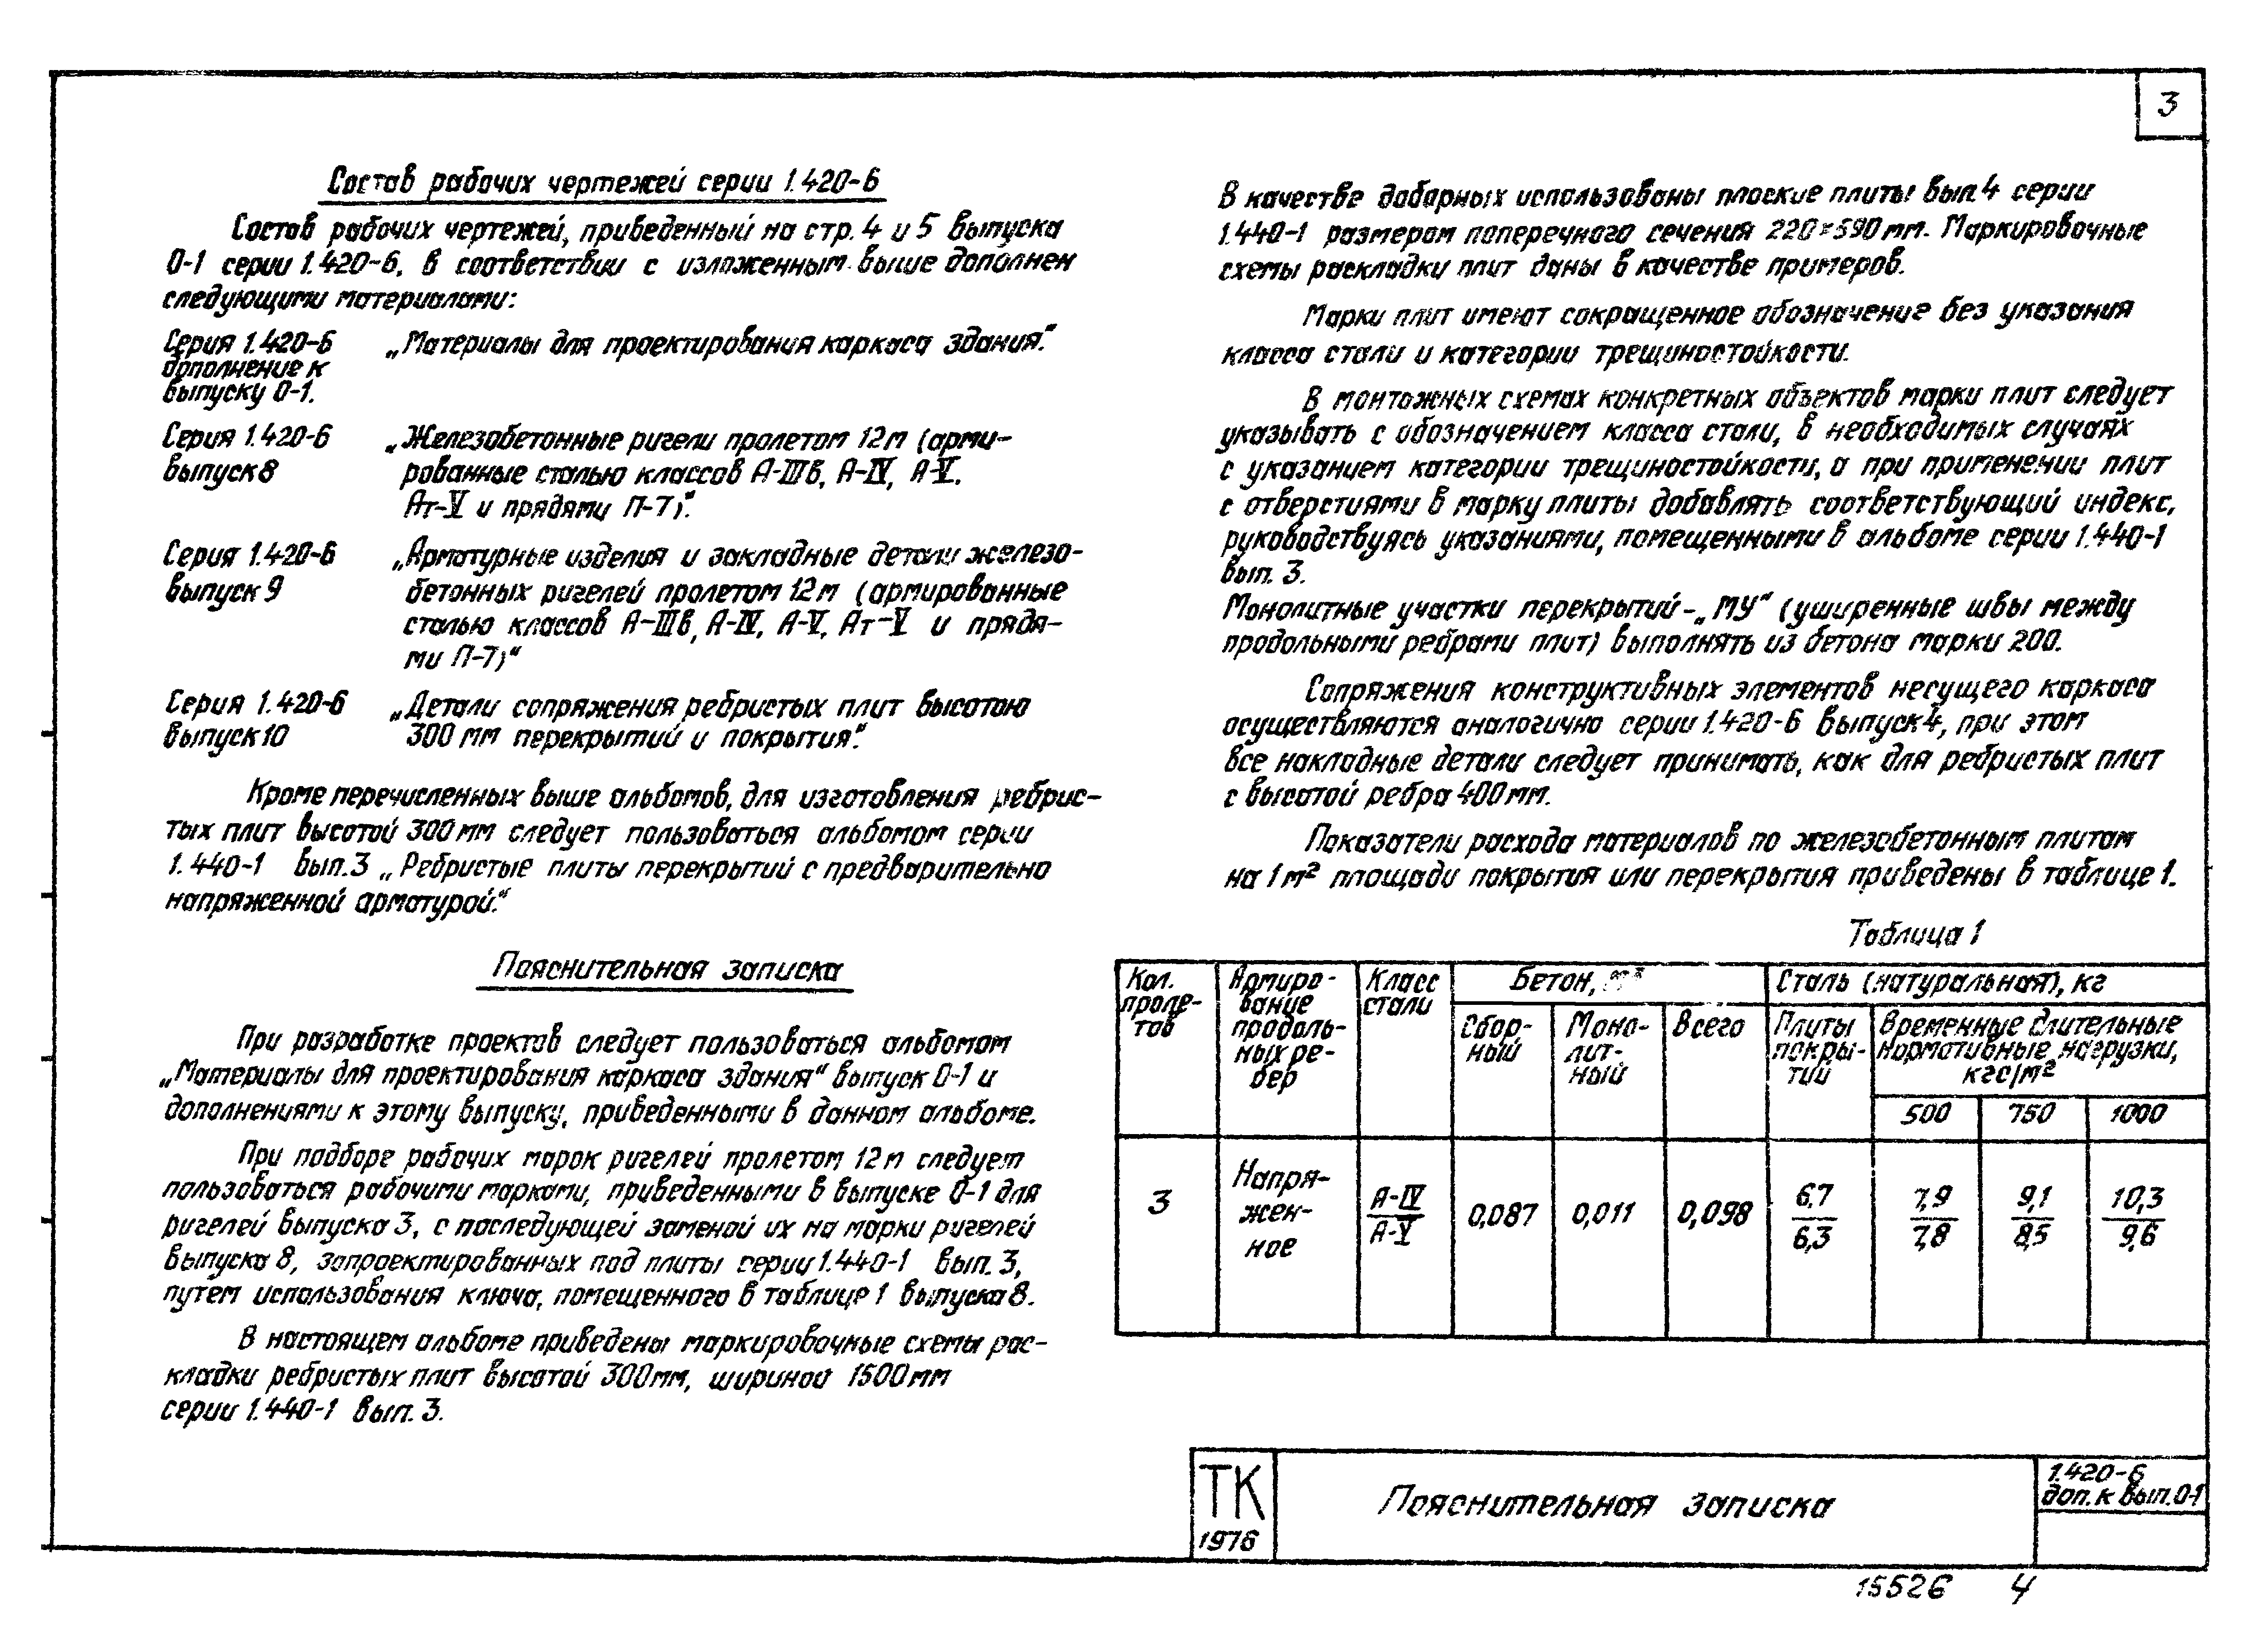 3
Состав рабочих чертежей серии 1.420-6
Состав рабочих чертежей, приведенный на стр. 4 и 5 выпуска
0-1 серии 1.420-6, в соответствии с изложенным выше дополнен
следующими материалами:
Серия 1.420-6 „Материалы для проектирования каркаса здания."
дополнение к
выпуску 0-1.
Серия 1.420-6 „Железобетонные ригели пролетом 12м (арми-
выпуск 8 рованные сталью классов А-IIIв, А-IV, А-V,
Ат-V и прядями П-7)."
Серия 1.420-6 „Арматурные изделия и закладные детали железо-
выпуск 9 бетонных ригелей пролетом 12м (армированные
сталью классов А-IIIв, А-IV, А-V, Ат-V и прядя-
ми П-7)"
Серия 1.420-6 „Детали сопряжения ребристых плит высотою
выпуск 10 300 мм перекрытий и покрытия."
Кроме перечисленных выше альбомов, для изготовления ребрис-
тых плит высотой 300мм следует пользоваться альбомом серии
1.440-1 вып.3 „Ребристые плиты перекрытий с предварительно
напряженной арматурой."
Пояснительная записка
При разработке проектов следует пользоваться альбомом
„Материалы для проектирования каркаса здания" выпуск 0-1 и
дополнениями к этому выпуску, приведенными в данном альбоме.
При подборе рабочих марок ригелей пролетом 12м следует
пользоваться рабочими марками, приведенными в выпуске 0-1 для
ригелей выпуска 3, с последующей заменой их на марки ригелей
выпуска 8, запроектированных под плиты серии 1.440-1 вып. 3,
путем использования ключа, помещенного в таблице 1 выпуска 8.
В настоящем альбоме приведены маркировочные схемы рас-
кладки ребристых плит высотой 300мм, шириной 1500мм
серии 1.440-1 вып. 3.
В качестве доборных использованы плоские плиты вып.4 серии
1.440-1 размером поперечного сечения 220×590мм. Маркировочные
схемы раскладки плит даны в качестве примеров.
Марки плит имеют сокращенное обозначение без указания
класса стали и категории трещиностойкости.
В монтажных схемах конкретных объектов марки плит следует
указывать с обозначением класса стали, в необходимых случаях
с указанием категории трещиностойкости, а при применении плит
с отверстиями в марку плиты добавлять соответствующий индекс,
руководствуясь указаниями, помещенными в альбоме серии 1.440-1
вып. 3.
Монолитные участки перекрытий-„МУ" (уширенные швы между
продольными ребрами плит) выполнять из бетона марки 200.
Сопряжения конструктивных элементов несущего каркаса
осуществляются аналогично серии 1.420-6 выпуск 4, при этом
все накладные детали следует принимать, как для ребристых плит
с высотой ребра 400мм.
Показатели расхода материалов по железобетонным плитам
на 1м² площади покрытия или перекрытия приведены в таблице 1.
Таблица 1
Кол. проле- тов
Армиро- вание продоль- ных ре- бер
Класс стали
Бетон, м³
Сталь (натуральная), кг
Сбор- ный
Моно- лит- ный
Всего
Плиты покры- тий
Временные длительные нормативные нагрузки, кгс/м²
500 750 1000
3 Напря- жен- ное А-IV/А-V 0,087 0,011 0,098 6,7/6,3 7,9/7,8 9,1/8,5 10,3/9,6
ТК
1976
Пояснительная записка
1.420-6
доп. к вып. 0-1
15526 4